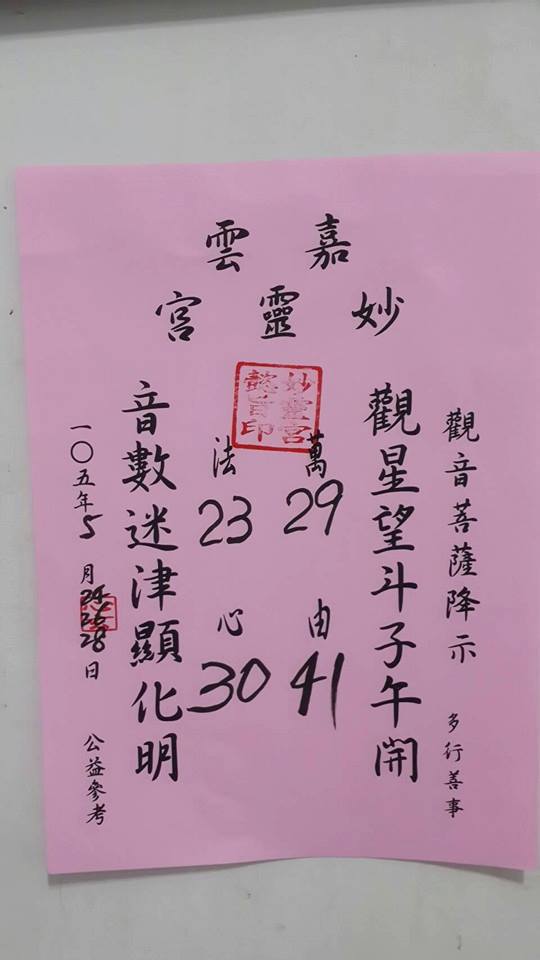 嘉雲
妙靈宮
觀音菩薩降示 多行善事
觀星望斗子午開
妙靈宮
懿旨印
萬29 由41
法23 心30
音數迷津顯化明
一〇五年5月24 26 28日 公益參考